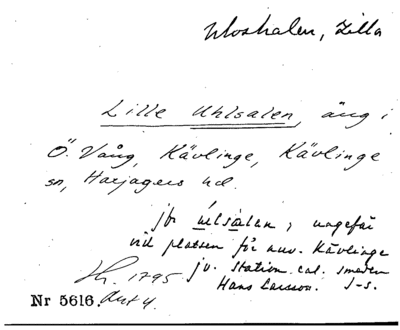 Uloshalen, Lilla
Lille Uhlsalen, äng i
Ö. Vång, Kävlinge, Kävlinge
sn, Harjagers hd.
jfr ulsalen, ungefär
vid platsen för nuv. Kävlinge
jv. station. cal. smeden
Hans Larsson. J-S.
1795
Akt 4.
Nr 5616